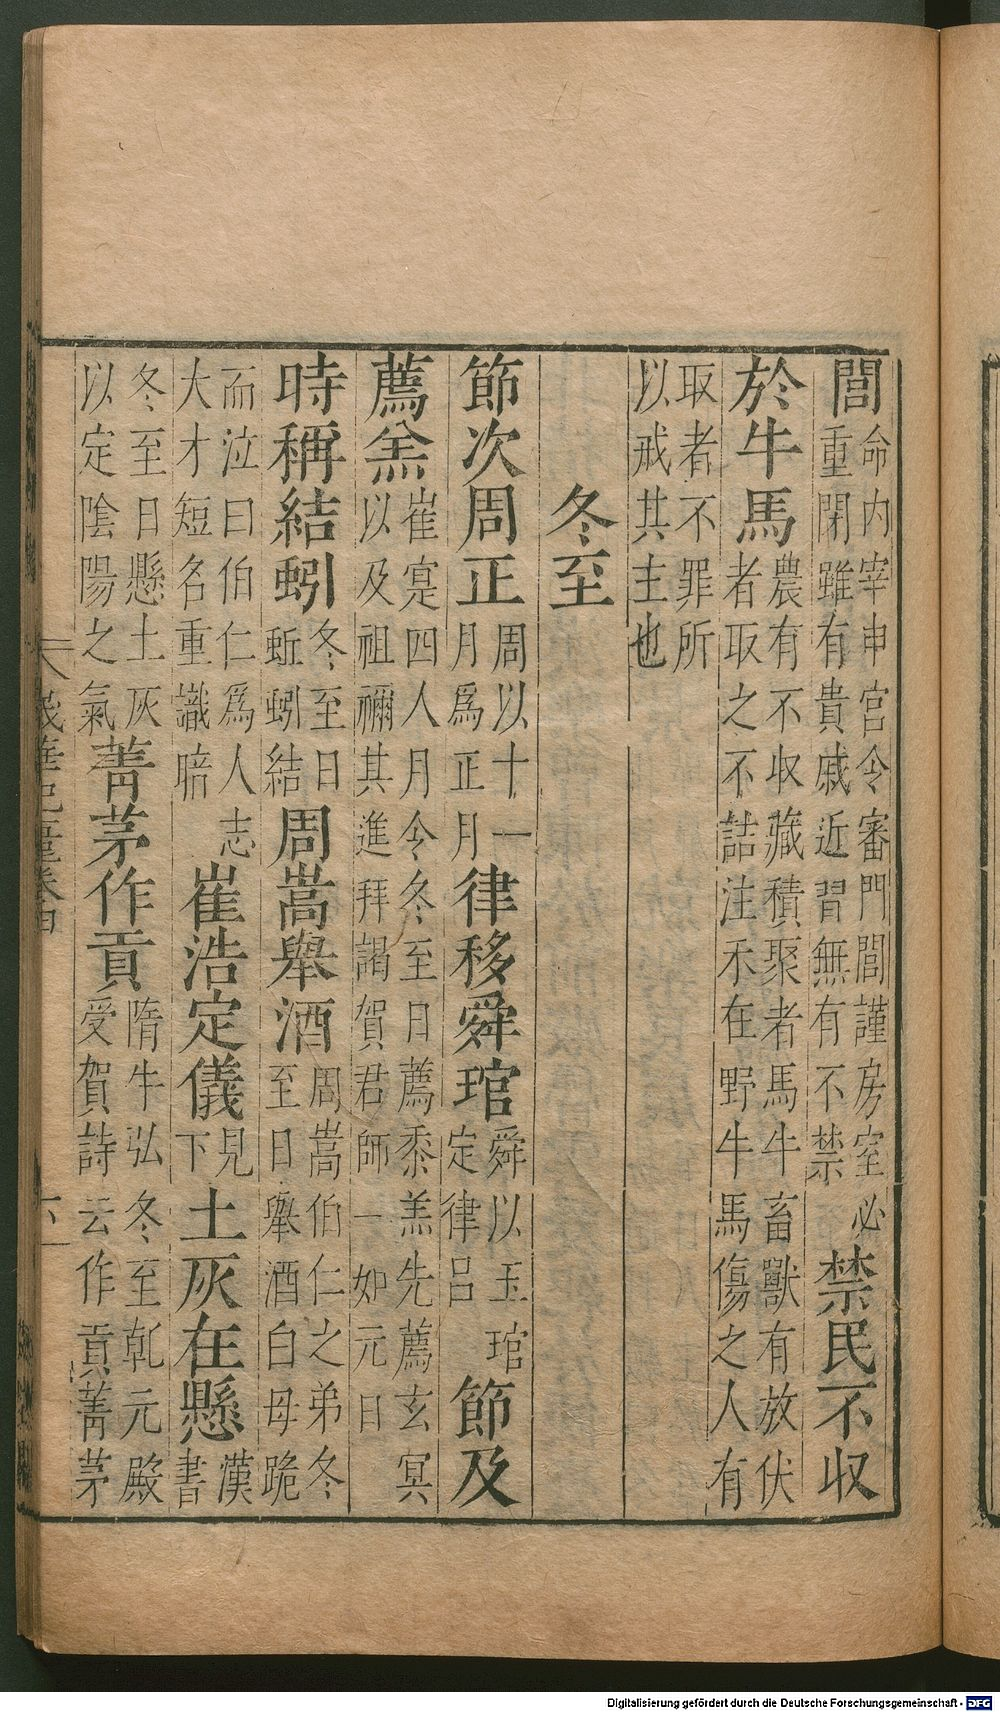 閭命內宰申宮令審門閭謹房室必重閉雖有貴戚近習無有不禁禁民不収
於牛馬農有不収藏積聚者馬牛畜獸有放伏者取之不詰注禾在野牛馬傷之人有
取者不罪所以戒其主也
冬至
節次周正周以十一月爲正月律移舜琯舜以玉琯定律呂節及
薦羔崔寔四人月令冬至日薦黍羔先薦玄冥以及祖禰其進拜謁賀君師一如元日
時稱結蚓冬至日蚯蚓結周嵩舉酒周嵩伯仁之弟冬至日舉酒白母跪
而泣曰伯仁爲人志大才短名重識暗崔浩定儀見下土灰在懸漢書
冬至日懸土灰以定陰陽之氣菁茅作貢隋牛弘冬至乾元殿受賀詩云作貢菁茅
卷四
Digitalisierung gefördert durch die Deutsche Forschungsgemeinschaft - DFG